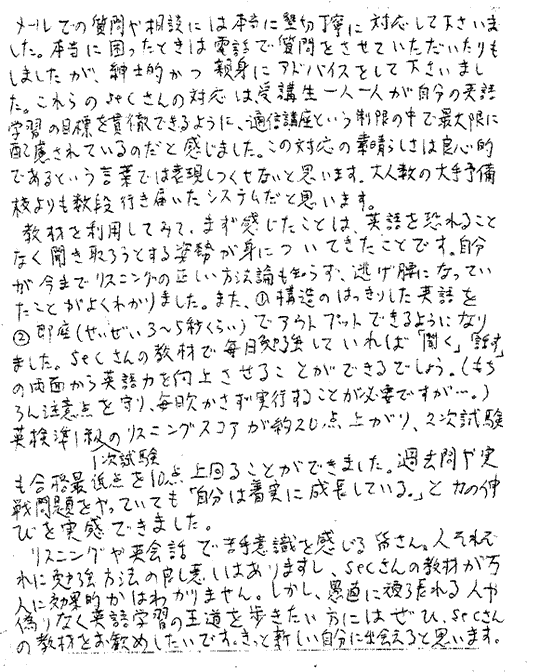 メールでの質問や相談には本当に懇切丁寧に対応して下さいま
した。本当に困ったときは電話で質問をさせていただいたりも
しましたが、紳士的かつ親身にアドバイスをして下さいまし
た。これらのsecさんの対応は、受講生一人一人が自分の英語
学習の目標を貫徹できるように、通信講座という制限の中で最大限に
配慮されているのだと感じました。この対応の素晴らしさは良心的
であるという言葉では表現しつくせないと思います。大人数の大手予備
校よりも数段行き届いたシステムだと思います。
教材を利用してみて、まず感じたことは、英語を恐れること
なく聞き取ろうとする姿勢が身についてきたことです。自分
が今までリスニングの正しい方法論も知らず、逃げ腰になってい
たことがよくわかりました。また、①構造のはっきりした英語を
②即座(せいぜい3~5秒くらい)でアウトプットできるようになり
ました。secさんの教材で毎日勉強していれば「聞く」「話す」
の両面から英語力を向上させることができるでしょう。(もち
ろん注意点を守り、毎日欠かさず実行することが必要ですが…。)
英検準1級のリスニングスコアが約20点上がり、2次試験
1次試験
も合格最低点を10点上回ることができました。過去問や実
戦問題をやっていても「自分は着実に成長している。」と力の伸
びを実感できました。
リスニングや英会話で苦手意識を感じる皆さん。人それぞ
れに勉強方法の良し悪しはありますし、secさんの教材が万
人に効果的かはわかりません。しかし、愚直に頑張れる人や
偽りなく英語学習の王道を歩きたい方にはぜひ、secさん
の教材をお勧めしたいです。きっと新しい自分に出会えると思います。